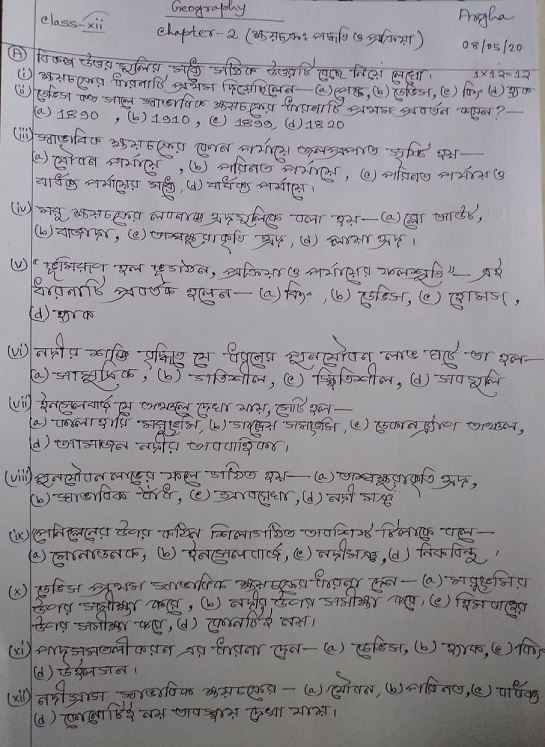 Geography
class-xii
Angha
chapter-2 (ক্ষয়চক্র: পদ্ধতি ও প্রক্রিয়া)
08/05/20
(A) বিকল্প উত্তর গুলির মধ্যে সঠিক উত্তরটি বেছে নিয়ে লেখো। 1x12=12
(i) ক্ষয়চক্রের ধারনাটি প্রথম দিয়েছিলেন—(a) পেঙ্ক, (b) ডেভিস, (c) কিং (d) হ্যাক
(ii) ডেভিস কত সালে স্বাভাবিক ক্ষয়চক্রের ধারনাটি প্রথম প্রবর্তন করেন?—
(a) 1890, (b) 1910, (c) 1899, (d) 1820
(iii) স্বাভাবিক ক্ষয়চক্রের কোন পর্যায়ে জলপ্রপাত সৃষ্টি হয়—
(a) যৌবন পর্যায়ে, (b) পরিনত পর্যায়ে, (c) পরিনত পর্যায় ও
বার্ধক্য পর্যায়ের মধ্যে, (d) বার্ধক্য পর্যায়ে।
(iv) মরু ক্ষয়চক্রের লবনাক্ত হ্রদগুলিকে বলা হয়—(a) ব্লো আউট,
(b) বাজাদা, (c) অশ্বক্ষুরাকৃতি হ্রদ, (d) প্লায়া হ্রদ।
(v) "ভূমিরূপ হল ভূগঠন, প্রক্রিয়া ও পর্যায়ের ফলশ্রুতি"— এই
ধারনাটি প্রবর্তক হলেন—(a) কিং, (b) ডেভিস, (c) হোমস,
(d) হ্যাক
(vi) নদীর শক্তি বৃদ্ধিতে যে ধরনের পুনর্যৌবন লাভ ঘটে তা হল—
(a) সামুদ্রিক, (b) গতিশীল, (c) স্থিতিশীল, (d) সবগুলি
(vii) ইনসেলবার্জ যে অঞ্চলে দেখা যায়, সেটি হল—
(a) কালাহারি মরুভূমি, (b) গাঙ্গেয় সমভূমি, (c) ডেকানট্র্যাপ অঞ্চল,
(d) আমাজন নদীর অববাহিকা।
(viii) পুনর্যৌবন লাভের ফলে গঠিত হয়—(a) অশ্বক্ষুরাকৃতি হ্রদ,
(b) স্বাভাবিক বাঁধ, (c) , (d) নদী মঞ্চ
(ix) পেনিপ্লেনের উপর কঠিন শিলাগঠিত অবশিষ্ট টিলাকে বলে—
(a) মোনাডনক, (b) ইনসেলবার্জ, (c) নদীমঞ্চ, (d) নিকবিন্দু।
(x) ডেভিস প্রথম স্বাভাবিক ক্ষয়চক্রের ধারনা দেন—(a) মরুভূমির
উপর সমীক্ষা করে, (b) নদীর উপর সমীক্ষা করে, (c) হিমবাহের
উপর সমীক্ষা করে, (d) কোনটিই নয়।
(xi) পাদসমতলীকরন এর ধারনা দেন—(a) ডেভিস, (b) হ্যাক, (c) কিং
(d) উইলসন।
(xii) নদীগ্রাস স্বাভাবিক ক্ষয়চক্রের—(a) যৌবন, (b) পরিনত, (c) বার্ধক্য
(d) কোনোটিই নয় অবস্থায় দেখা যায়।